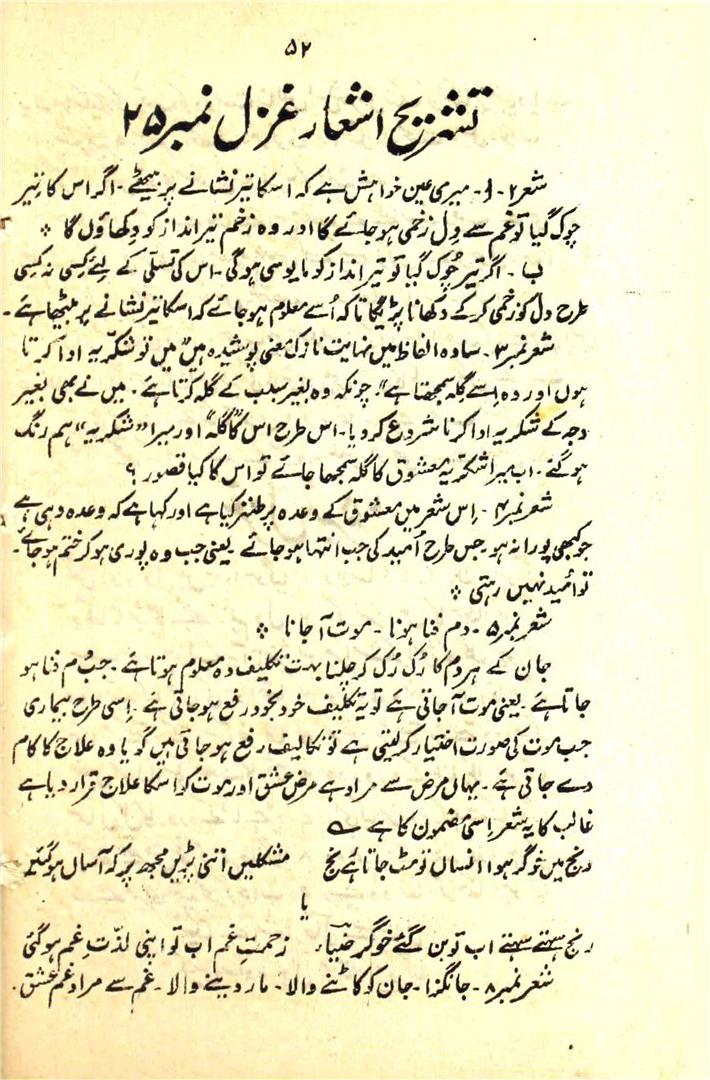 ۵۲
تشریح اشعار غزل نمبر ۲۵
شعر ۲-ا۔ میری عین خواہش ہے کہ اسکا تیر نشانے پر بیٹھے۔ اگر اس کا تیر
چوک گیا تو غم سے دِل زخمی ہو جائے گا اور وہ زخم تیر انداز کو دکھاؤں گا ؞
ب۔ اگر تیر چُوک گیا تو تیر انداز کو مایوسی ہو گی۔ اس کی تسلّی کے لئے کِسی نہ کِسی
طرح دل کو زخمی کر کے دکھانا پڑیگا تاکہ اُسے معلوم ہو جائے کہ اسکا تیر نشانے پر بیٹھا ہے۔
شعر نمبر ۳۔ سادہ الفاظ میں نہایت نازک معنی پوشیدہ ہیں "میں تو شکریہ ادا کرتا
ہوں اور وہ اِسے گلہ سمجھتا ہے"۔ چونکہ وہ بغیر سبب کے گلہ کرتا ہے۔ میں نے بھی بغیر
وجہ کے شکریہ ادا کرنا شروع کر دیا۔ اس طرح اس کا "گلہ" اور میرا "شکریہ" ہم رنگ
ہو گئے۔ اب میرا شکریہ معشوق کا گلہ سمجھا جائے تو اس کا کیا قصور؟
شعر نمبر ۴۔ اِس شعر میں معشوق کے وعدہ پر طنز کیا ہے اور کہا ہے کہ وعدہ وہی ہے
جو کبھی پورا نہ ہو۔ جس طرح اُمید کی جب انتہا ہو جائے یعنی جب وہ پوری ہو کر ختم ہو جائے۔
تو اُمید نہیں رہتی ؞
شعر نمبر ۵۔ دم فنا ہونا۔ موت آ جانا ؞
جان کے ہر دم کا رُک رُک کر چلنا بہت تکلیف دہ معلوم ہوتا ہے۔ جب دم فنا ہو
جاتا ہے۔ یعنی موت آ جاتی ہے تو یہ تکلیف خود بخود رفع ہو جاتی ہے۔ اِسی طرح بیماری
جب موت کی صورت اختیار کر لیتی ہے تو تکالیف رفع ہو جاتی ہیں گویا وہ علاج کا کام
دے جاتی ہے۔ یہاں مرض سے مراد ہے مرض عشق اور موت کو اسکا علاج قرار دیا ہے
غالب کا یہ شعر اِسی مضمون کا ہے ؎
رنج میں خوگر ہوا انساں تو مٹ جاتا ہے رنج مشکلیں اتنی پڑیں مجھ پر کہ آساں ہو گئیں
یا
رنج سہتے سہتے اب تو بن گئے خوگر ضیاؔء زحمتِ غم اب تو اپنی لذّتِ غم ہو گئی
شعر نمبر ۸۔ جانگزا۔ جان کو کاٹنے والا۔ مار دینے والا۔ غم سے مراد غم عشق۔